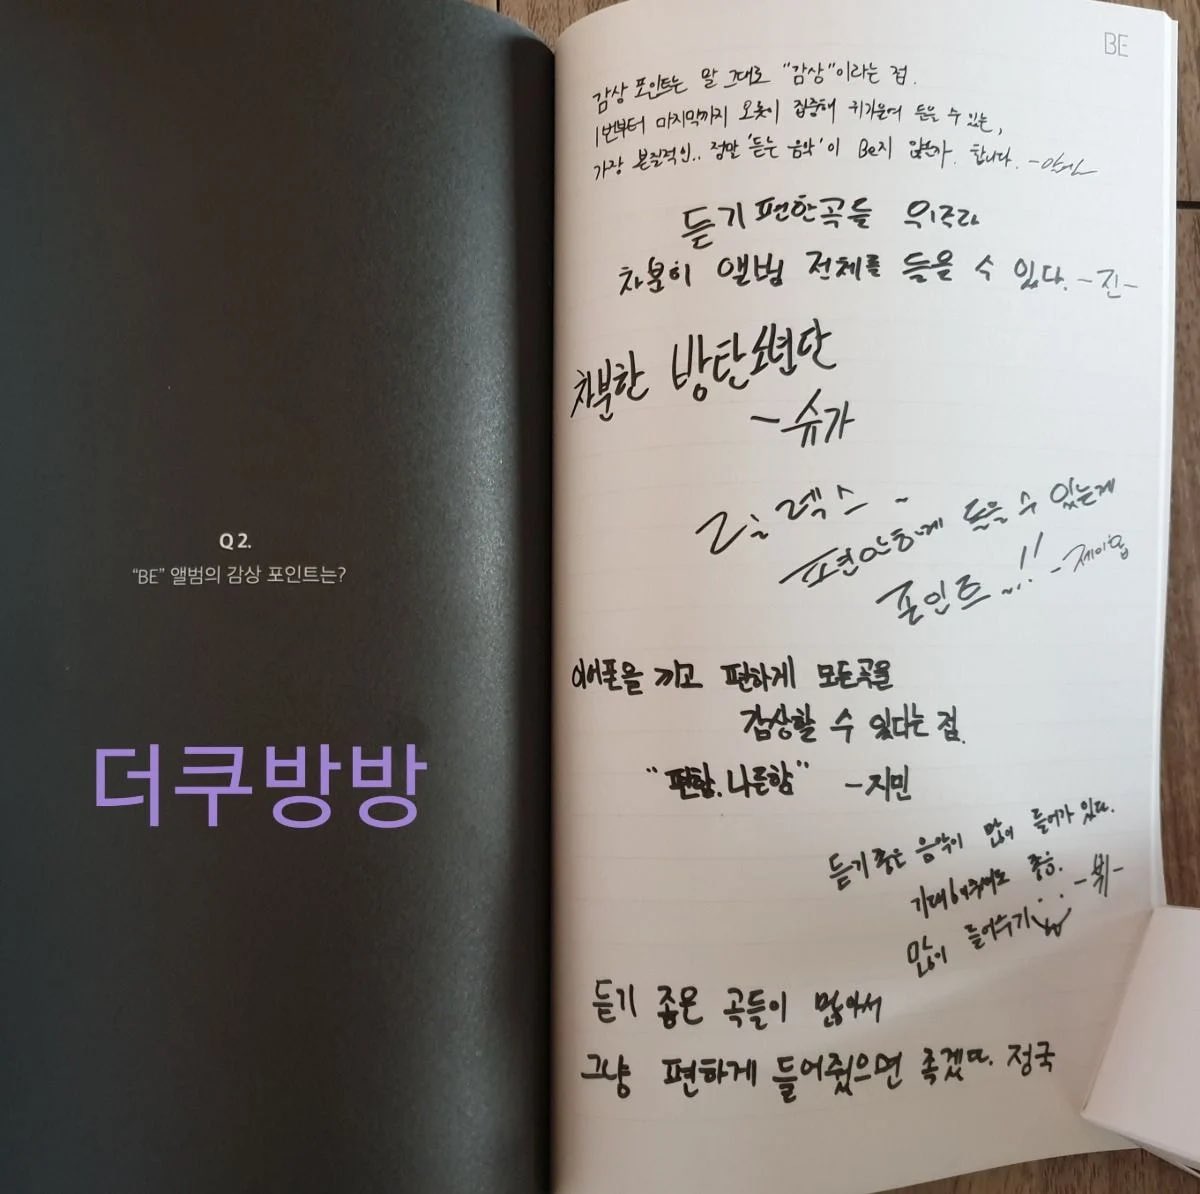 Q 2.
“BE” 앨범의 감상 포인트는?
더쿠방방
BE
감상 포인트는 말 그대로 "감상"이라는 점.
1번부터 마지막까지 오롯이 집중해 귀기울여 들을 수 있는,
가장 본질적인.. 정말 '듣는 음악'이 Be지 않은가. 합니다.
듣기 편한곡들 위주라
차분히 앨범 전체를 들을 수 있다. -진-
차분한 방탄소년단
-슈가
릴렉스~
편안하게 들을 수 있는게
포인트~!! -제이홉
이어폰을 끼고 편하게 모든곡을
감상할 수 있다는 점.
"편함. 나른함" -지민
듣기 좋은 음악이 많이 들어가 있다.
기대해주셔도 좋음. -뷔-
많이 들어주기
듣기 좋은 곡들이 많아서
그냥 편하게 들어줬으면 좋겠다. 정국